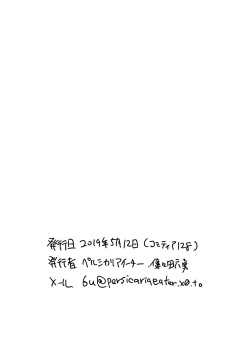 発行日 2019年5月12日 (コミティア128)
発行者 ペルシカリアイーター
メール 6u@persicariaeater.x0.to